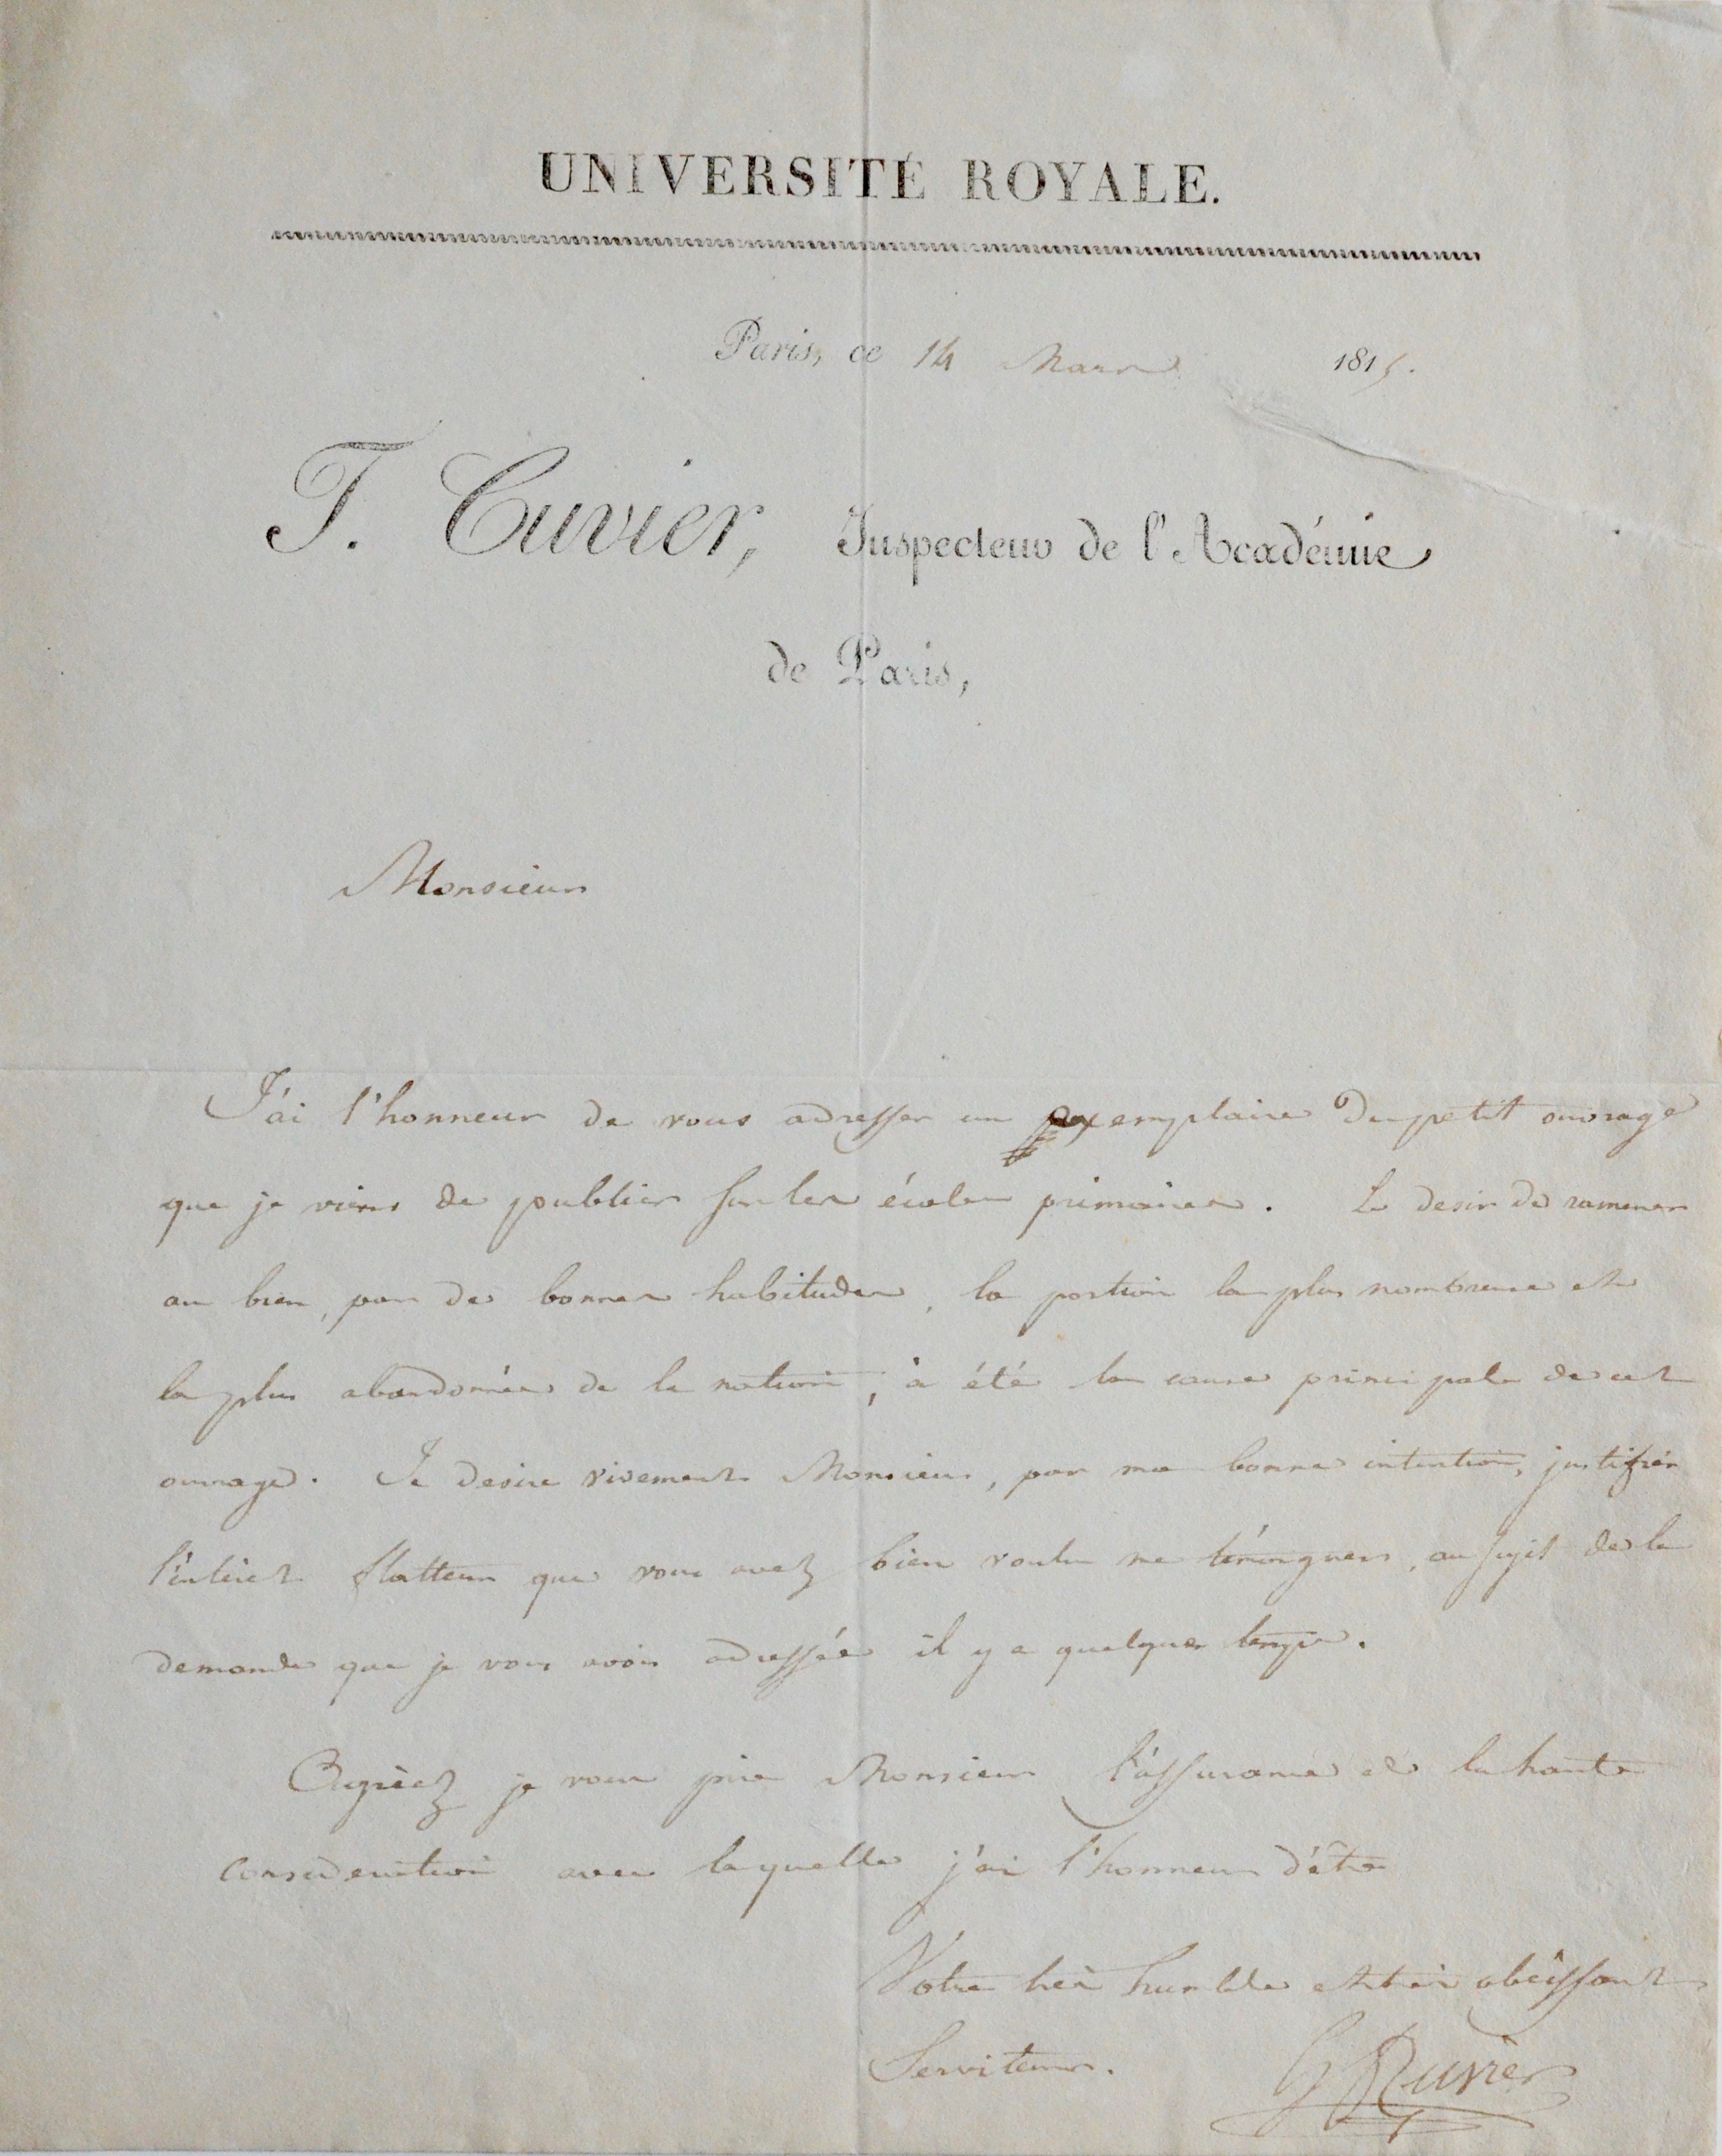 UNIVERSITÉ ROYALE.
Paris, ce 14 Mars 1815.
F. Cuvier, Inspecteur de l'Académie
de Paris,
Monsieur
J'ai l'honneur de vous adresser un exemplaire du petit ouvrage
que je viens de publier sur les écoles primaires. Le desir de ramener
au bien, par de bonnes habitudes, la portion la plus nombreuse et
la plus abandonnée de la nation, a été la cause principale de cet
ouvrage. Je desire vivement Monsieur, par ma bonne intention, justifier
l'intéret flatteur que vous avez bien voulu me témoigner, au sujet de la
demande que je vous avois adressée il y a quelques temps.
Agréez je vous prie Monsieur l'assurance de la haute
consideration avec laquelle j'ai l'honneur d'être
Votre très humble et très obéissant
Serviteur. Cuvier